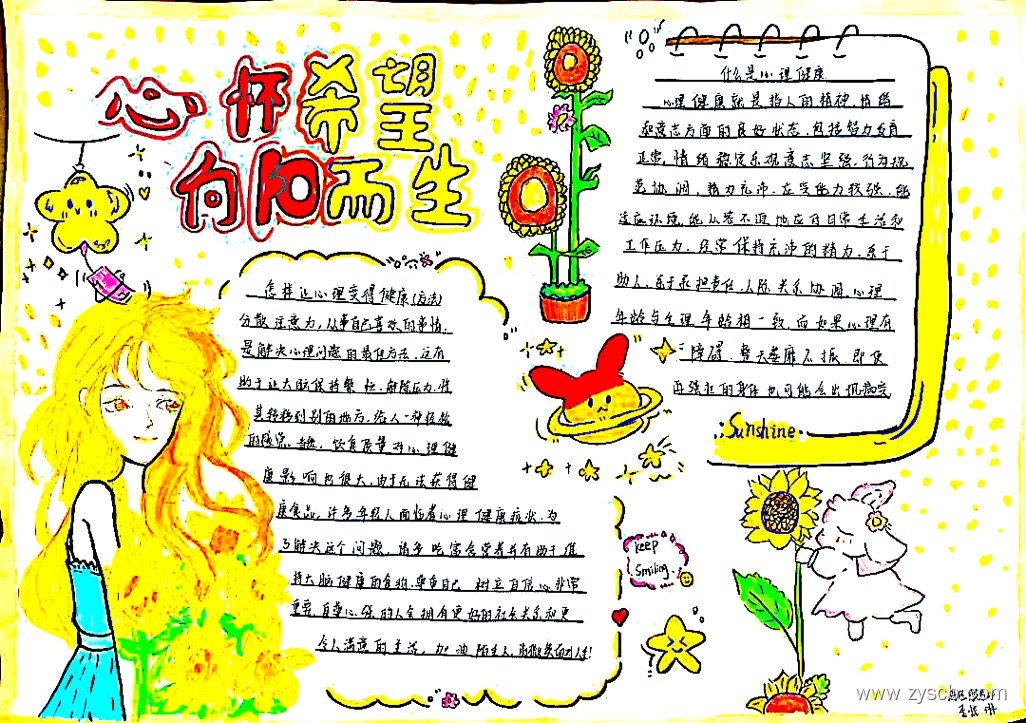 心怀希望
向阳而生
怎样让心理变得健康(方法)
分散注意力,从事自己喜欢的事情,
是解决心理问题的最佳方法,这有
助于让大脑保持繁忙,解除压力,将
其转移到别的地方,给人一种轻松
的感觉。当然,饮食质量对心理健
康影响也很大,由于无法获得健
康食品,许多年轻人面临着心理健康症状,为
了解决这个问题,请多吃富含营养并有助于维
持大脑健康的食物,尊重自己,树立自信心非常
重要,自尊心强的人会拥有更好的社会关系和更
令人满意的生活,加油陌生人,请微笑面对人生!
什么是心理健康
心理健康就是指人的精神、情绪
和意志方面的良好状态,包括智力发育
正常,情绪稳定乐观意志坚强,行为规
范协调,精力充沛,应变能力较强,能
适应环境,能从容不迫地应付日常生活和
工作压力,经常保持充沛的精力,乐于
助人,乐于承担责任,人际关系协调,心理
年龄与生理年龄相一致,而如果心理有
障碍,整天萎靡不振,即使
再强壮的身体也可能会出现病变
Sunshine
keep
Smiling.
www.zyscb.com